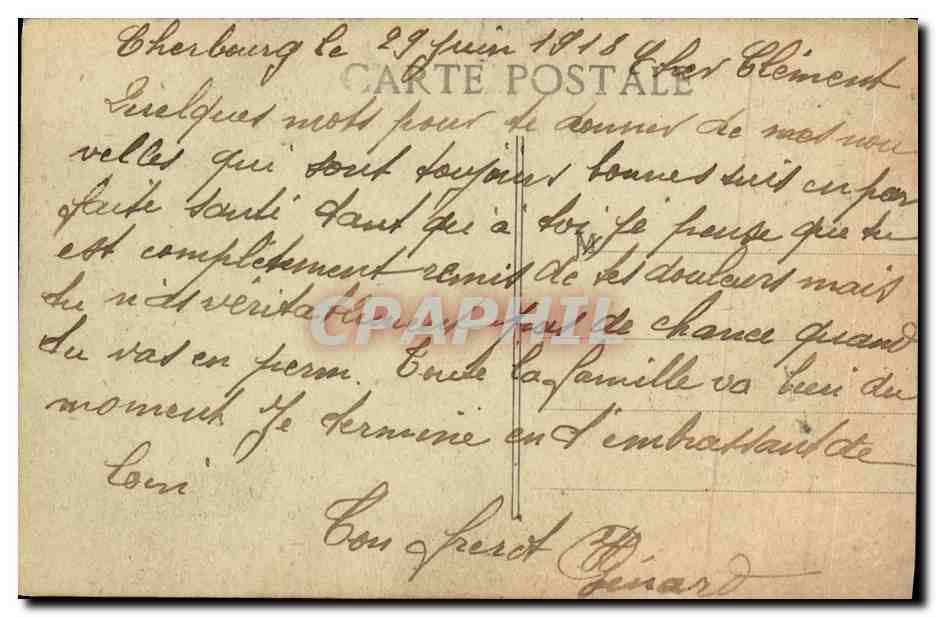 Cherbourg le 29 Juin 1918 Cher Clément
CARTE POSTALE
Quelques mots pour te donner de mes nou
velles qui sont toujours bonnes suis en par
faite santé tant qu'à toi je pense que tu
est complètement remis de tes douleurs mais
tu n'as véritablement pas de chance quand
CPAPHIL
tu vas en perm. Toute la famille va bien du
moment. Je termine en t'embrassant de
loin
Ton frerot